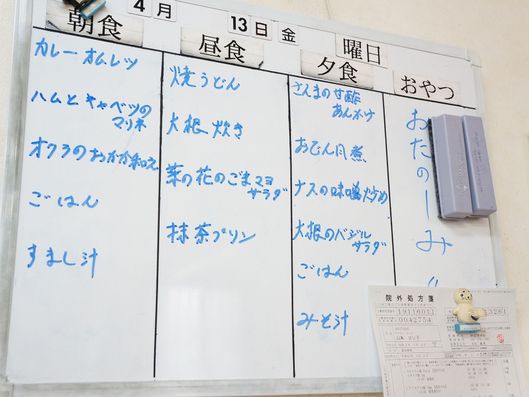 4月 13日 金 曜日
朝食
カレーオムレツ
ハムとキャベツの
マリネ
オクラのおかか和え
ごはん
すまし汁
昼食
焼うどん
大根炊き
菜の花のごまマヨ
サラダ
抹茶プリン
夕食
さんまの甘酢
あんかけ
おでん風煮
ナスの味噌炒め
大根のバジル
サラダ
ごはん
みそ汁
おやつ
おたのしみ
院外処方箋